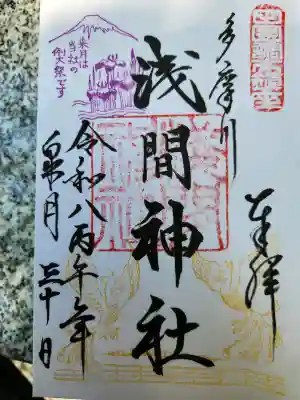 多摩川
奉拝
浅間神社
来月は
当社の
例大祭です
令和八丙午年
皐月 三十日